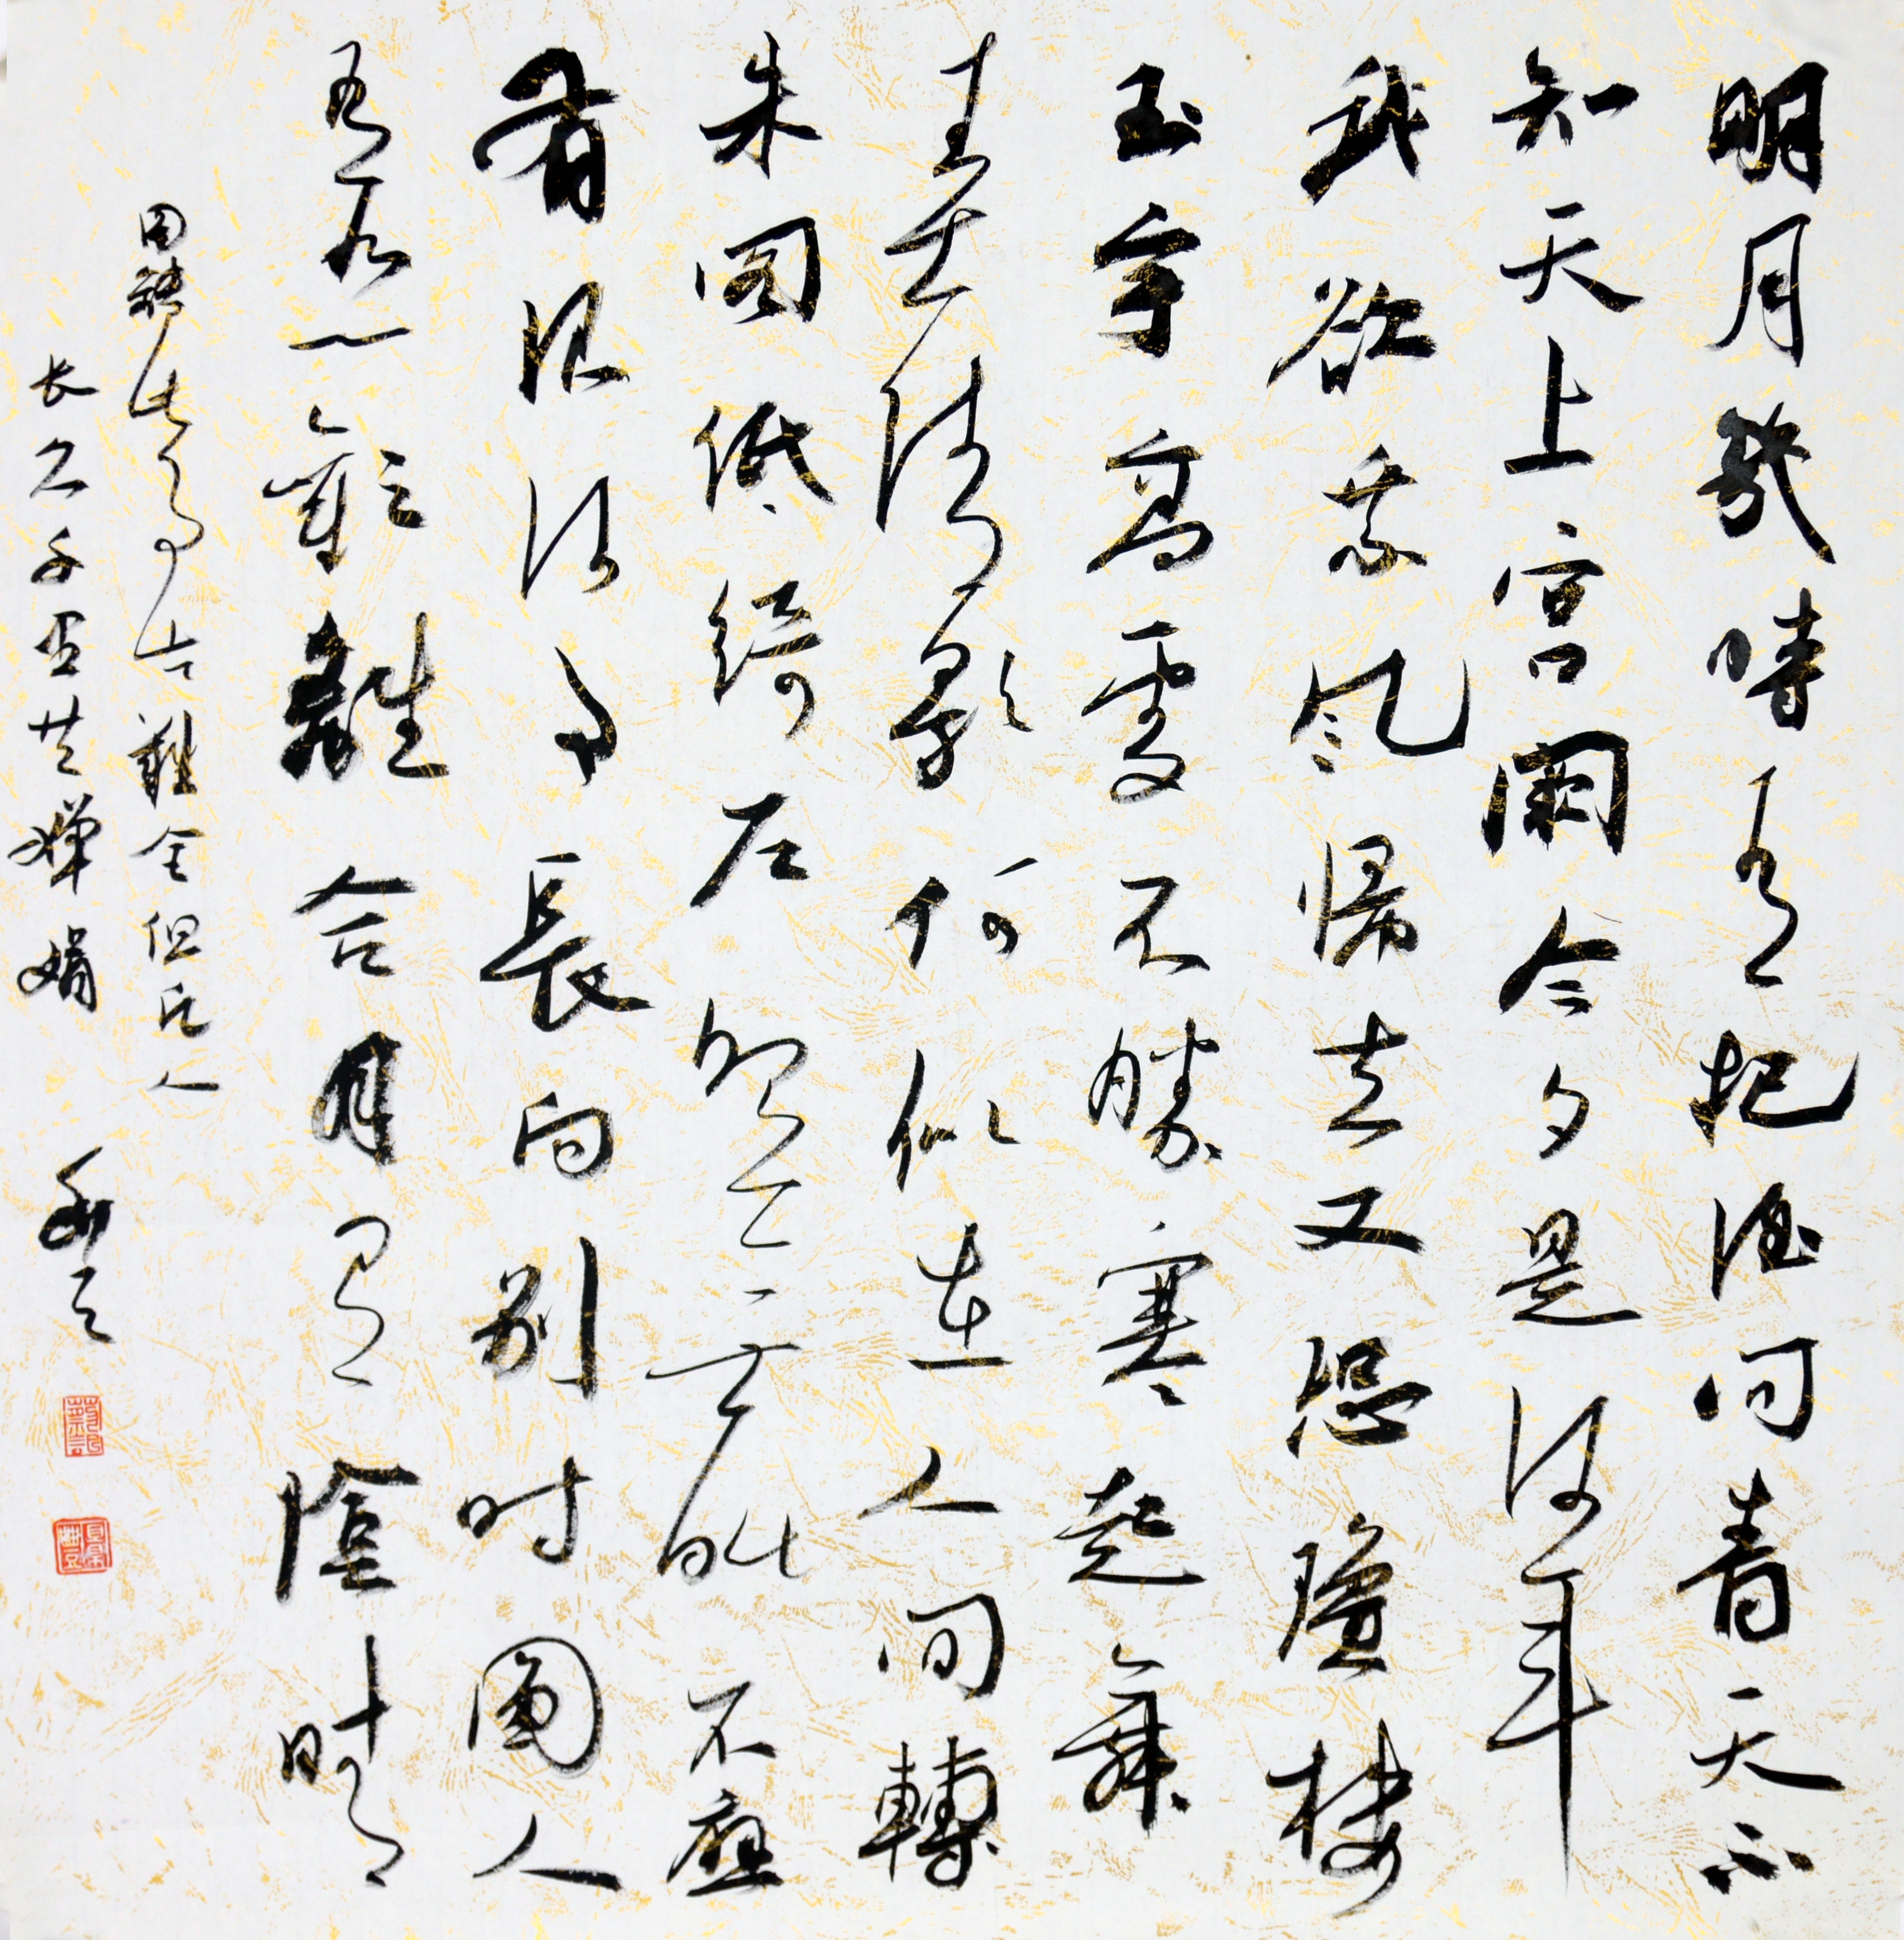 明月幾時有把酒问青天不
知天上宫闕今夕是何年
我欲乘风歸去又恐瓊楼
玉宇高處不勝寒起舞
弄清影何似在人间轉
朱阁低绮户照無眠不應
有恨何事長向别时圆人
有悲歡離合月有陰晴
圆缺此事古難全但願人
长久千里共嬋娟